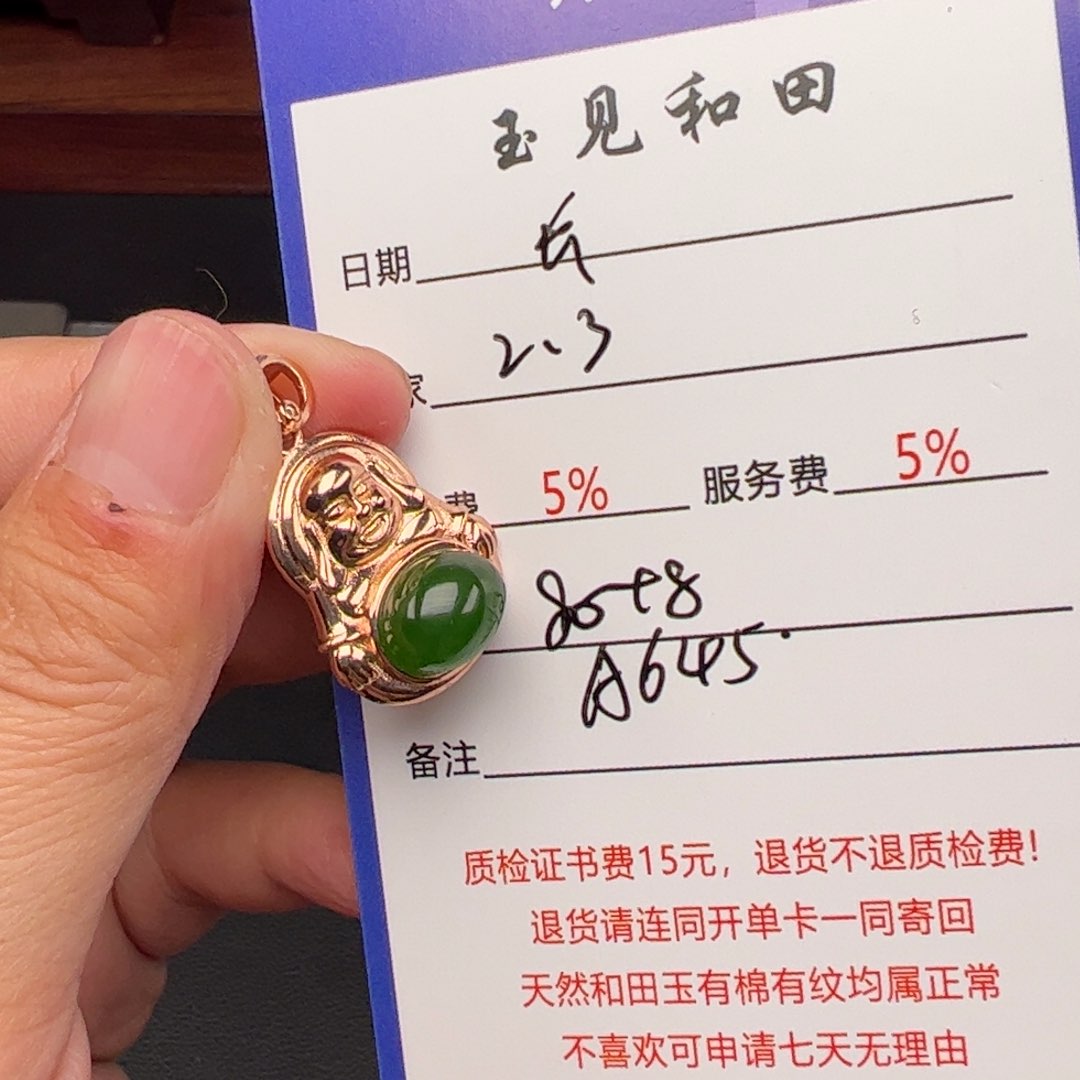 玉见和田
日期
2、3
家
费 5% 服务费 5%
80+8
A645
备注
质检证书费15元，退货不退质检费！
退货请连同开单卡一同寄回
天然和田玉有棉有纹均属正常
不喜欢可申请七天无理由